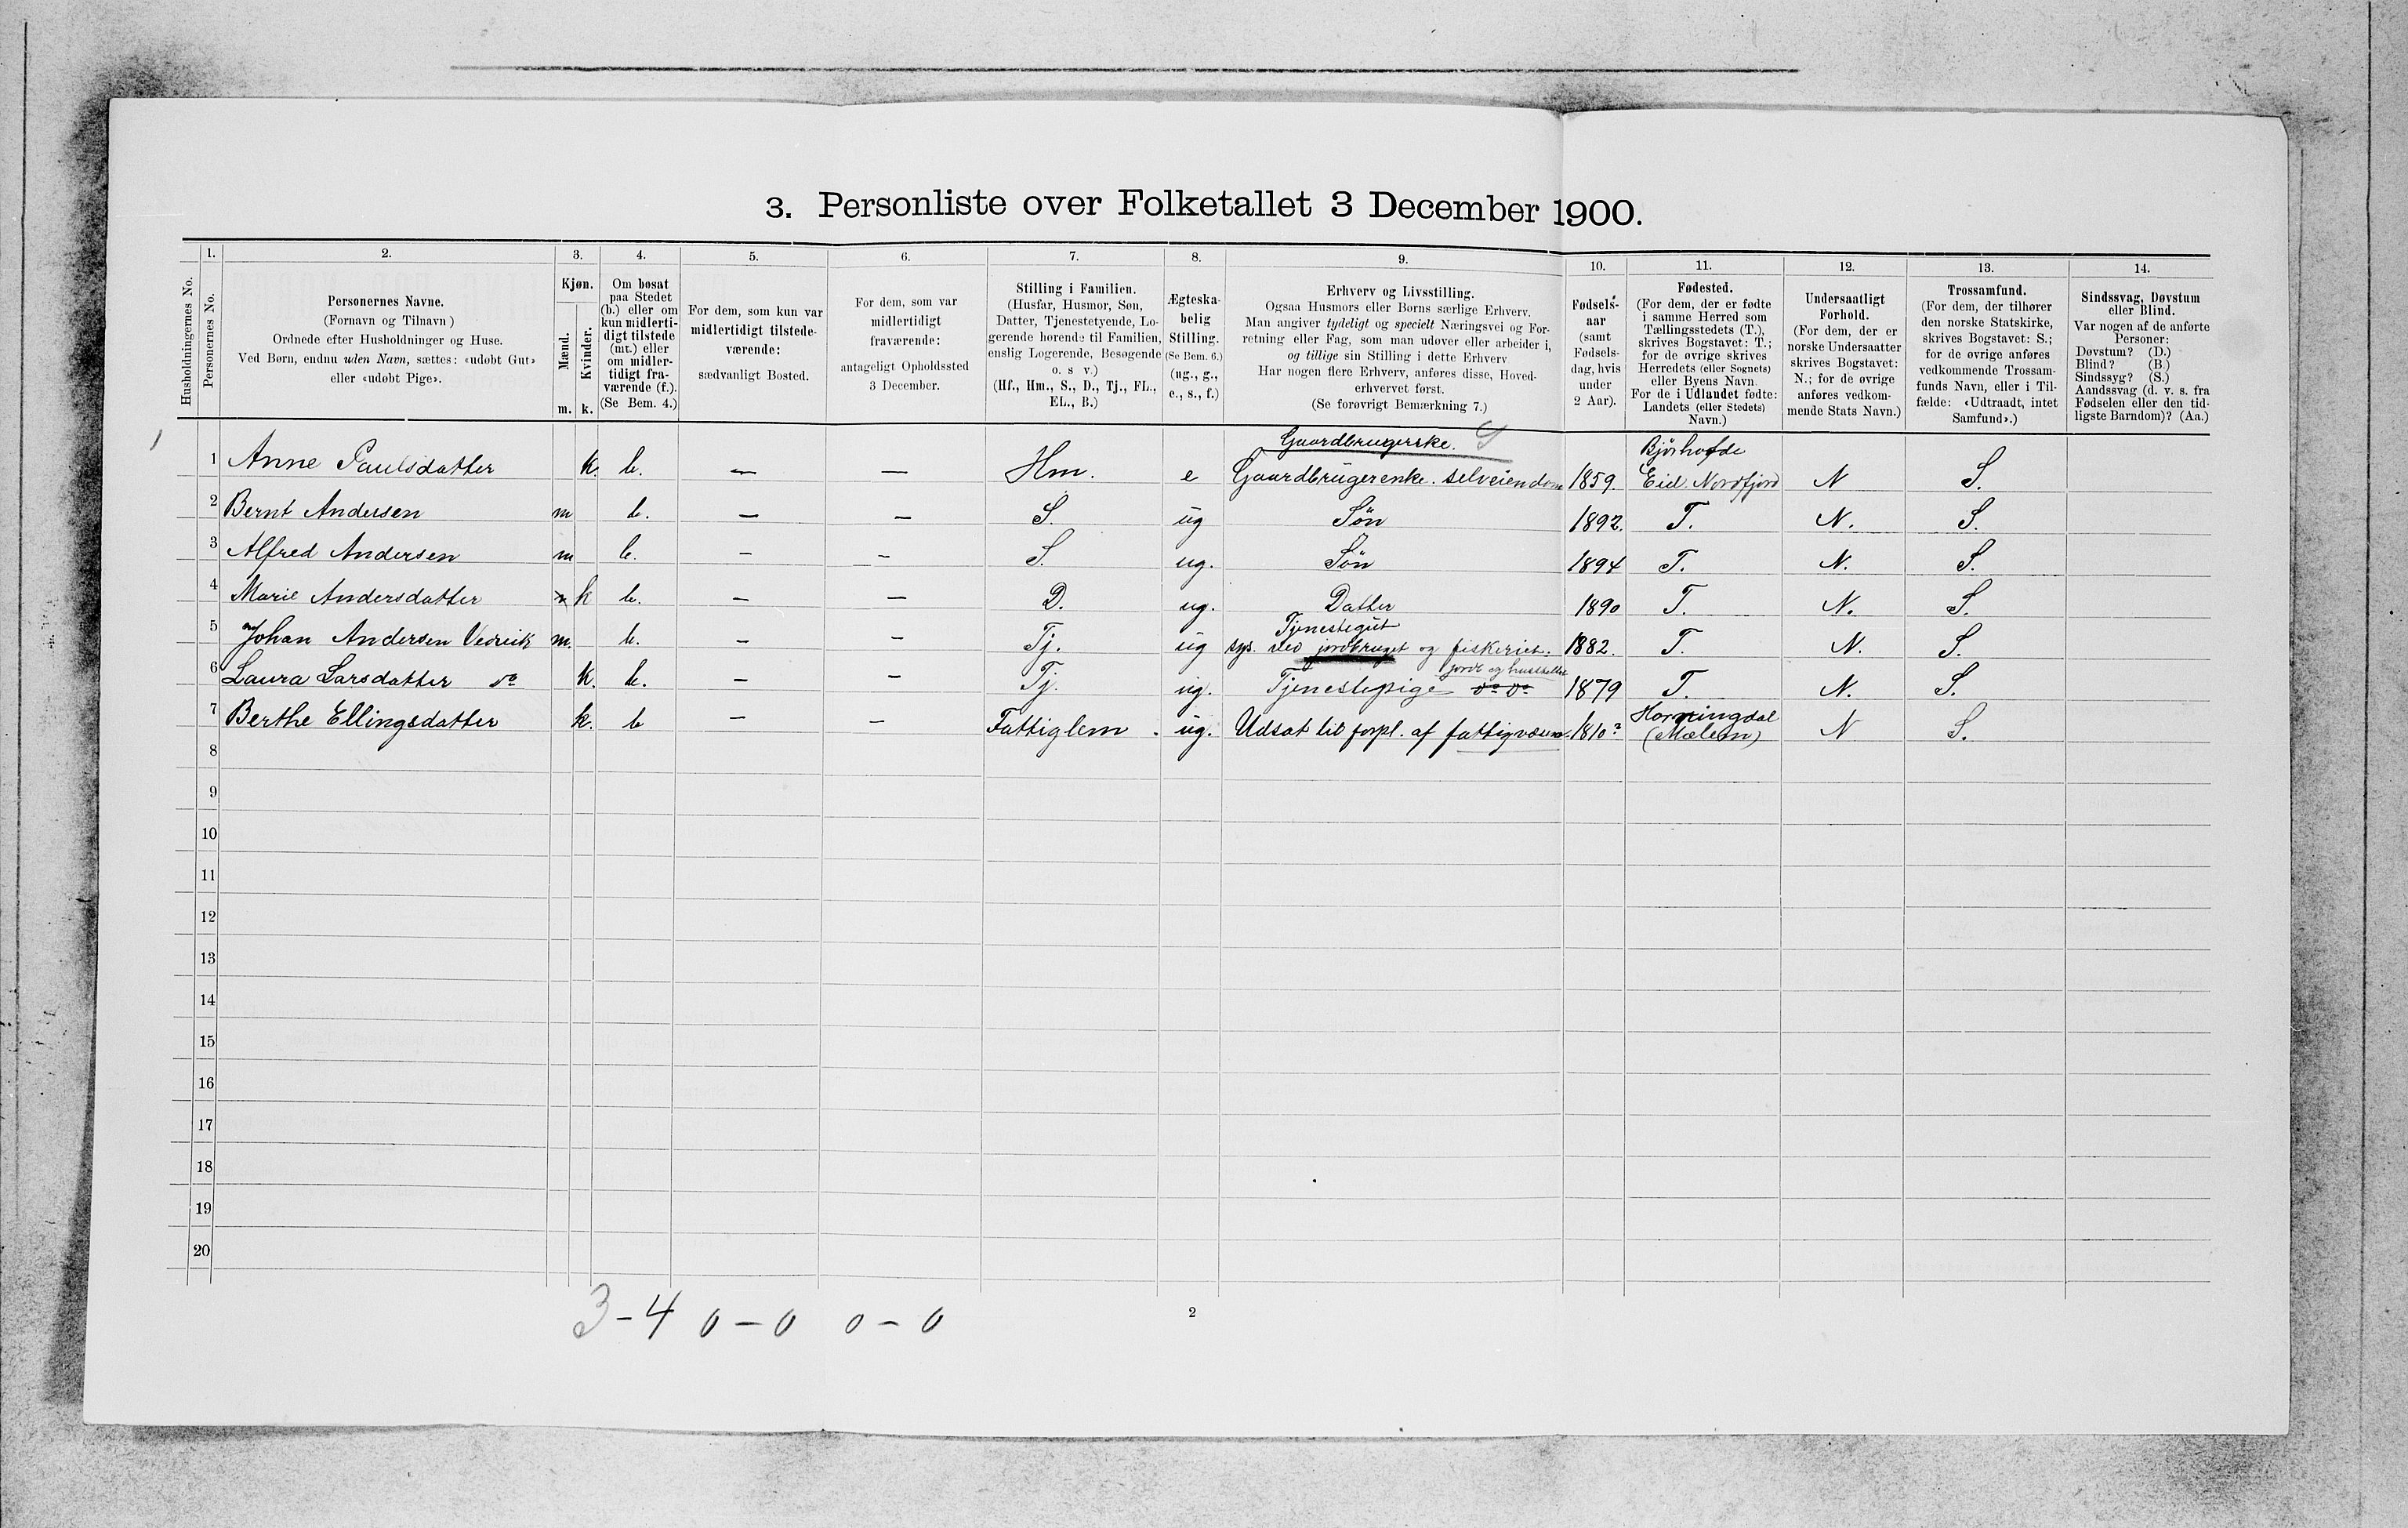 3. Personliste over Folketallet 3 December 1900.
Husholdningernes No.
1.
Personernes No.
2.
Personernes Navne.
(Fornavn og Tilnavn)
Ordnede efter Husholdninger og Huse.
Ved Børn, endnu uden Navn, sættes: «udøbt Gut»
eller «udøbt Pige».
3.
Kjøn.
Mænd.
Kvinder.
m. k.
4.
Om bosat
paa Stedet
(b.) eller om
kun midlerti-
digt tilstede
(mt.) eller
om midler-
tidigt fra-
værende (f.).
(Se Bem. 4.)
5.
For dem, som kun var
midlertidigt tilstede-
værende:
sædvanligt Bosted.
6.
For dem, som var
midlertidigt
fraværende:
antageligt Opholdssted
3 December.
7.
Stilling i Familien.
(Husfar, Husmor, Søn,
Datter, Tjenestetyende, Lo-
gerende hørende til Familien,
enslig Logerende, Besøgende
o. s v.)
(Hf., Hm., S., D., Tj., FL.,
EL., B.)
8.
Ægteska-
belig
Stilling.
(Se Bem. 6.)
(ug., g.,
e., s., f.)
9.
Erhverv og Livsstilling.
Ogsaa Husmors eller Børns særlige Erhverv.
Man angiver tydeligt og specielt Næringsvei og For-
retning eller Fag, som man udøver eller arbeider i,
og tillige sin Stilling i dette Erhverv
Har nogen flere Erhverv, anføres disse, Hoved-
erhvervet først.
(Se forøvrigt Bemærkning 7.)
10.
Fødsels-
aar
(samt
Fødsels-
dag, hvis
under
2 Aar).
11.
Fødested.
(For dem, der er fødte
i samme Herred som
Tællingsstedets (T.),
skrives Bogstavet: T.;
for de øvrige skrives
Herredets (eller Sognets)
eller Byens Navn
For de i Udlandet fødte:
Landets (eller Stedets)
Navn.)
12.
Undersaatligt
Forhold.
(For dem, der er
norske Undersaatter
skrives Bogstavet:
N.; for de øvrige
anføres vedkom-
mende Stats Navn.)
13.
Trossamfund.
(For dem, der tilhører
den norske Statskirke,
skrives Bogstavet: S.;
for de øvrige anføres
vedkommende Trossam-
funds Navn, eller i Til-
fælde: «Udtraadt, intet
Samfund».)
14.
Sindssvag, Døvstum
eller Blind.
Var nogen af de anførte
Personer:
Døvstum? (D.)
Blind? (B.)
Sindssyg? (S.)
Aandssvag (d. v. s. fra
Fødselen eller den tid-
ligste Barndom)? (Aa.)
Gaardbrugerske. S Bjørhofde
1 1 Anne Paulsdatter k. b. — — Hm. e Gaardbrugerenke. selveiendom 1859. Eid Nordfjord N S.
2 Bernt Andersen m b. — — S. ug Søn 1892. T. N. S.
3 Alfred Andersen m b. — — S. ug. Søn 1894 T. N. S.
4 Marie Andersdatter k b. — — D. ug. Datter 1890 T. N. S.
Tjenestegut
5 Johan Andersen Vedvik m. b. — — Tj. ug sys. ved jordbruget og fiskeriet. 1882. T. N. S.
jordb og husstellet
6 Laura Larsdatter do k. b. — — Tj. ug. Tjenestepige do do 1879 T. N. S.
Horningdal
7 Berthe Ellingsdatter k. b — — Fattiglem. ug. Udsat til forpl. af fattigvæsen. 1810? (Mælem) N S.
8
9
10
11
12
13
14
15
16
17
18
19
20
3 - 4 0 - 0 0 - 0
2